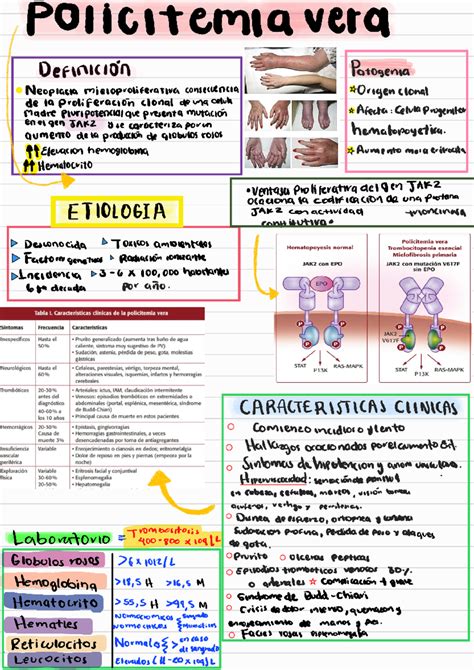 POLICITEMIA VERA
Definición
Neoplasia mieloproliferativa consecuencia
de la Proliferación clonal de una celula
Madre Pluripotencial que presenta mutación
en el gen JAK2 que se caracteriza por un
aumento de la producción de globulos rojos
Elevacion hemoglobina
Hematocrito
Patogenia
Origen clonal
Afecta: Celula Progenitora
hematopoyetica.
Aumento masa eritrocita
ETIOLOGIA
Desconocida
Toxicos ambientales
Factores geneticos
Radiación ionizante
Incidencia
3-6 x 100,000 habitantes
por año.
6ta decada
Ventaja Proliferativa del gen JAK2
ocasiona la codificación de una proteina
JAK2 con actividad tirosincinasa
constitutiva.
Hematopoyesis normal
JAK2 con EPO
EPO
P
P
STAT
P13K
RAS-MAPK
Policitemia vera
Trombocitopenia esencial
Mielofibrosis primaria
JAK2 con mutación V617F
sin EPO
JAK2
V617F
P
P
STAT
P13K
RAS-MAPK
Tabla I. Características clínicas de la policitemia vera
Síntomas Frecuencia Características
Inespecíficos
Hasta el
50%
• Prurito generalizado (aumenta tras baño de agua
caliente, síntoma muy sugestivo de PV)
• Sudación, astenia, pérdida de peso, gota, molestias
gástricas
Neurológicos
Hasta el
60%
• Cefaleas, parestesias, vértigo, torpeza mental,
alteraciones visuales, isquemias, infartos y hemorragias
cerebrales
Trombóticos
20-50%
antes del
diagnóstico
40-60% a
los 10 años
• Arteriales: ictus, IAM, claudicación intermitente
• Venosos: episodios tromboembólicos en extremidades o
abdominales (portal, esplénica, mesentérica, síndrome
de Budd-Chiari)
• Principal causa de muerte en estos pacientes
Hemorrágicos
20-30%
Causa de
muerte
• Epistaxis, gingivorragias
• Hemorragias gastrointestinales, a veces
desencadenadas por toma de antiagregantes
Insuficiencia
vascular
periférica
Variable
• Enrojecimiento o cianosis en dedos; eritromelalgia
• Dolor de reposo en pies y piernas (empeora por la
noche)
Exploración
Variable
• Eritrosis facial y conjuntival
• Esplenomegalia
• Hepatomegalia
CARACTERISTICAS CLINICAS
Comienzo incidioso y lento
Hallazgos ocasionados por el aumento Eri.
Sintomas de hipertencion y
Hiperviscocidad: sensación de
en cabeza, cefaleas, mareos, visión borrosa
acufenos, vertigo y parestesias.
Disnea de esfuerzo, ortopnea y
sudoracion profusa, Perdida de Peso y ataques
de gota.
Prurito
Ulceras Pepticas
Episodios tromboticos venosos 30%
o arteriales
Complicación + grave
Sindrome de Budd-Chiari
Crisis de dolor intenso, quemazon y
enrojecimiento de manos y pies.
Facies rojas
Laboratorio = Trombocitosis
400-800 x 109/L
Globulos rojos >6 x 1012/L
Hemoglobina >18,5 H >16,5 M
Hematocrito >55,5 H >49,5 M
Hematies
Reticulocitos Normal o en caso
de sangrado
Leucocitos Elevados